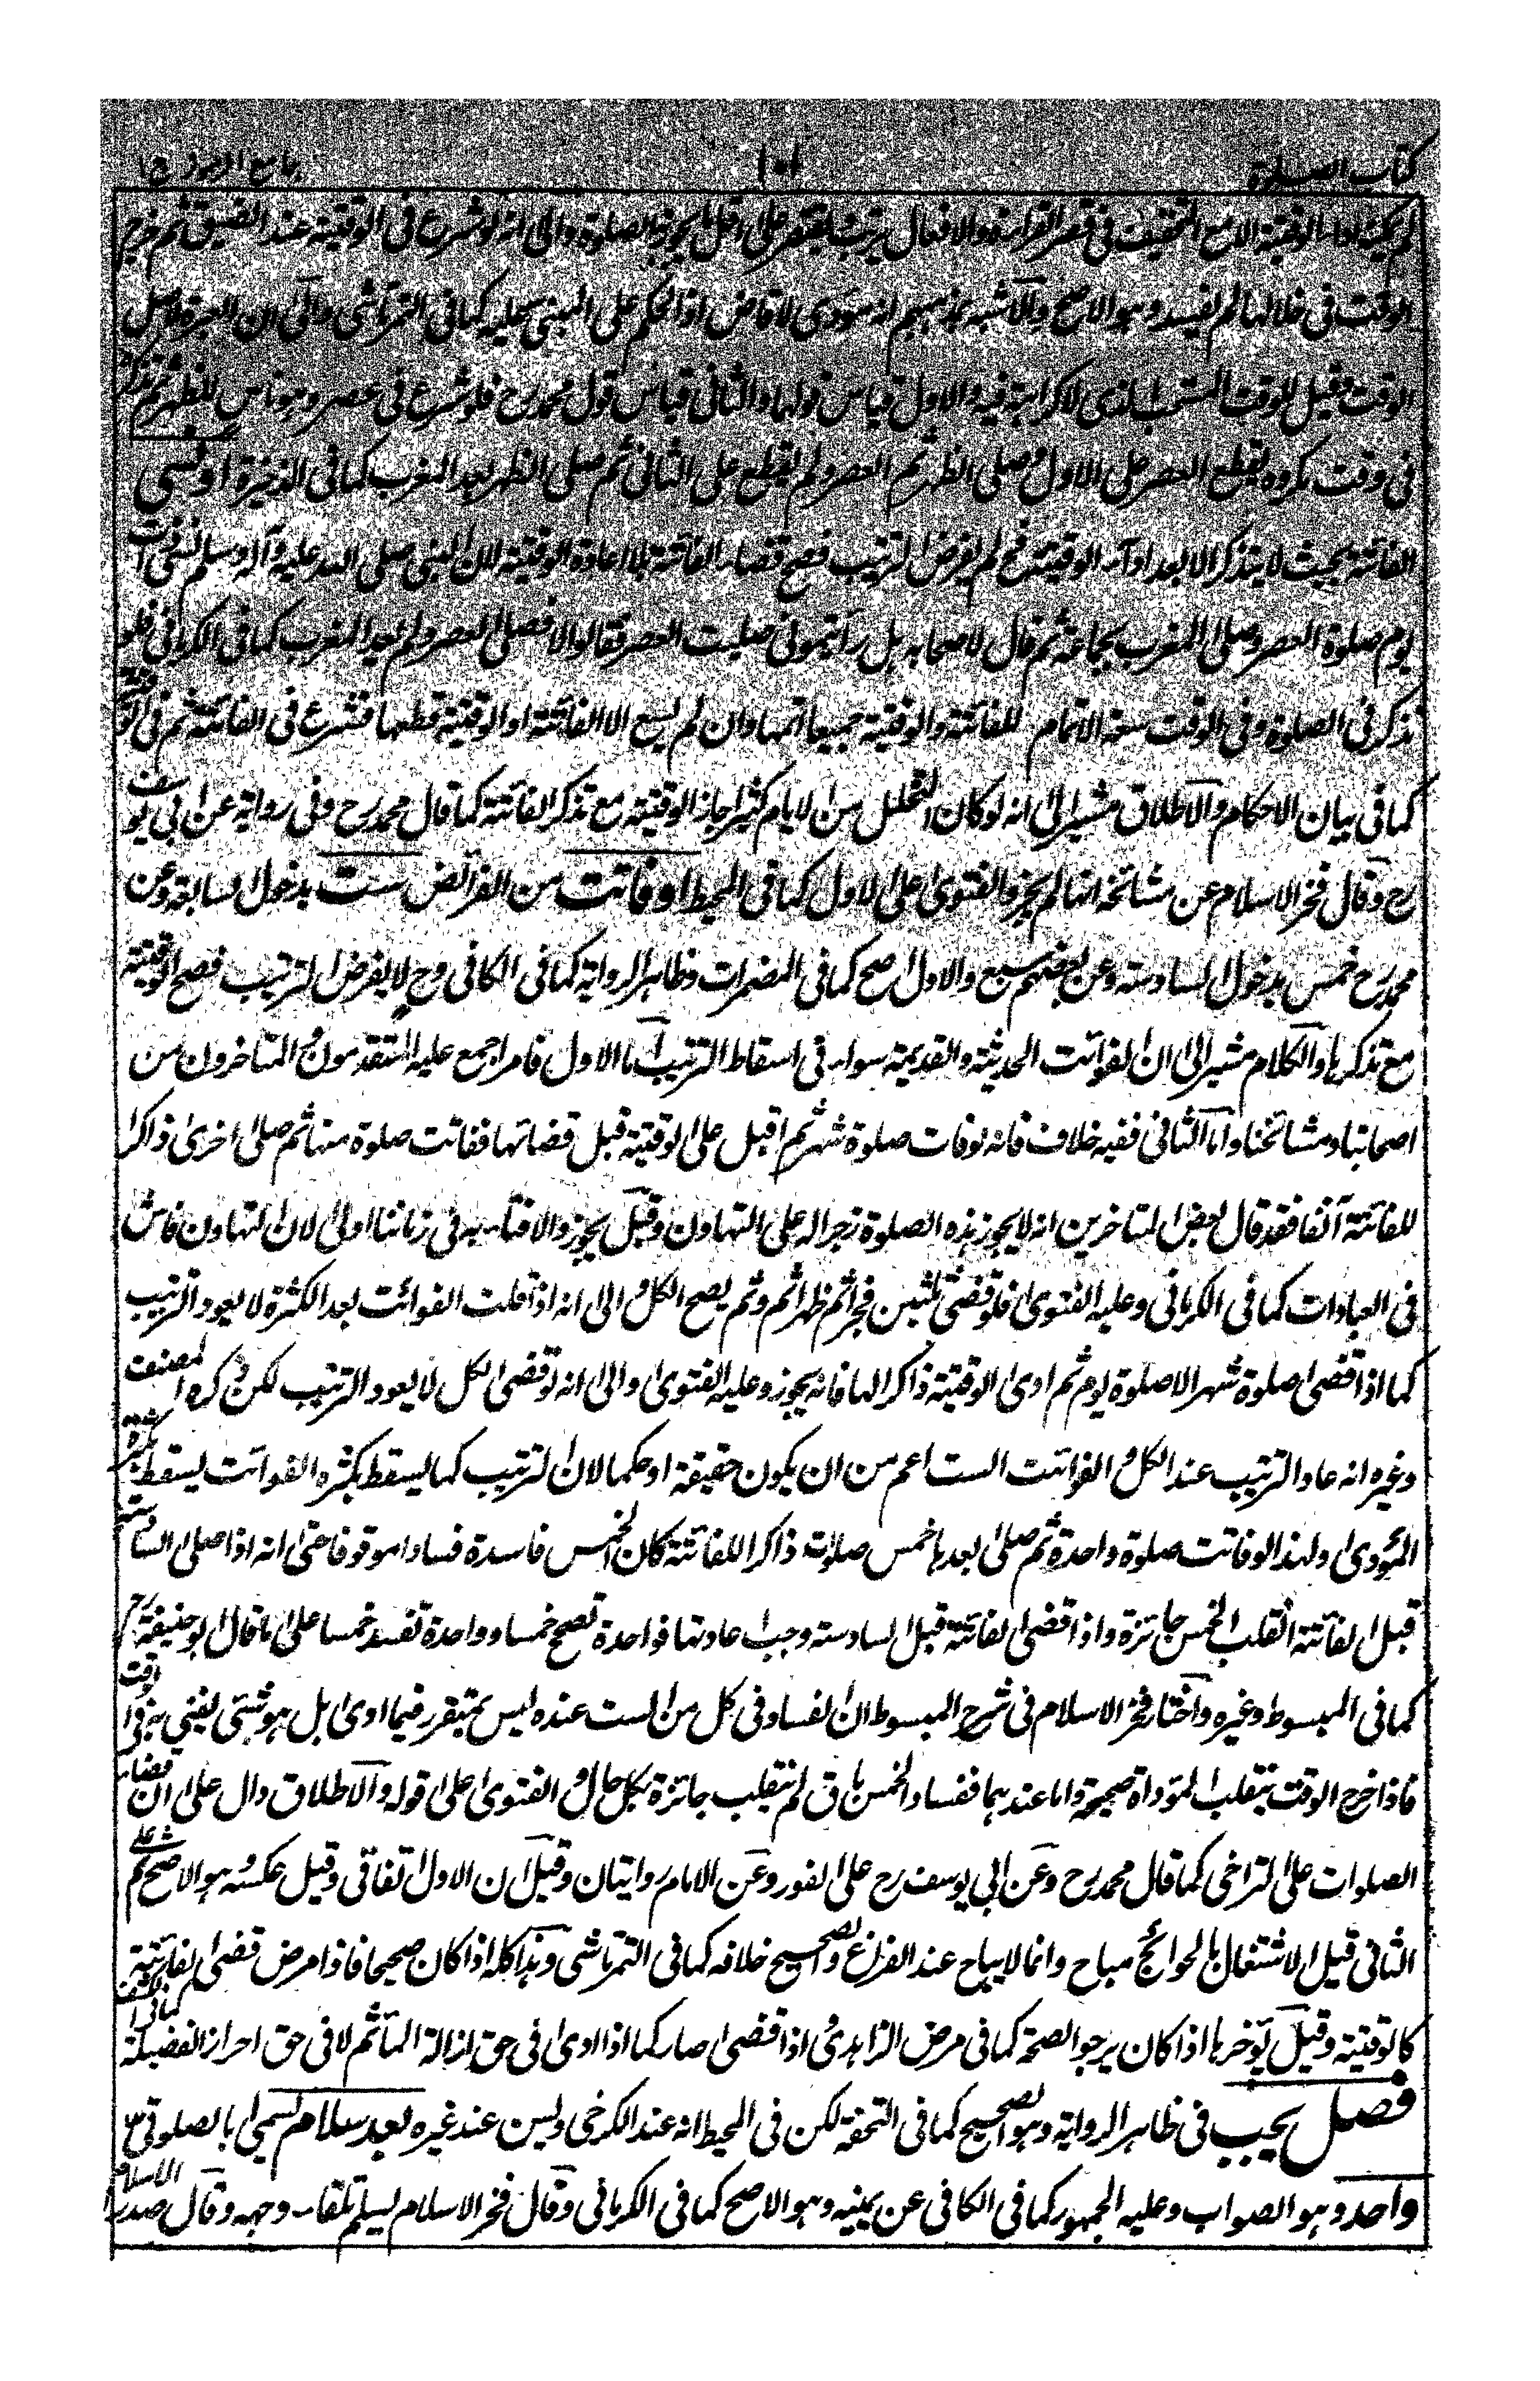 كتاب الصلوة ١٠١ جامع الرموز ج ١
لم يمكنه اداء الوقتية الا مع التخفيف في قصر القراءة والافعال يرتب ويقتصر على اقل ما يجوز به الصلوة والى انه لو شرع في الوقتية عند الضيق ثم خرج
الوقت في خلالها لم يفسد وهو الاصح والاشبه بمذهبهم انه مؤدى لا قاض اذ الحكم على المبني كما في التمرتاشي والى ان العبرة لاصل
الوقت وقيل للوقت المستحب الذي لا كراهة فيه والاول قياس قولهما والثاني قياس قول محمد رح فلو شرع في عصر وهو ناس للظهر ثم تذكر
في وقت مكروه يقطع العصر على الاول وصلى الظهر ثم العصر ولم يقطع على الثاني ثم صلى الظهر بعد المغرب كما في الذخيرة او نسي
الفائتة بحيث لا يتذكر الا بعد اداء الوقتية فح لم يفرض الترتيب فصح قضاء الفائتة بلا اعادة الوقتية لان النبي صلى الله عليه وآله وسلم نسي
يوم صلوة العصر وصلى المغرب بجماعة ثم قال لاصحابه هل رأيتموني صليت العصر فقالوا لا فصلى العصر ولم يعد المغرب كما في الكرماني فلو
تذكر في الصلوة وفي الوقت سعة الاتمام للفائتة والوقتية جميعا اتمها وان لم يسع الا الفائتة او الوقتية قطعها فشرع في الفائتة ثم في الوقتية
كما في بيان الاحكام والاطلاق مشير الى انه لو كان التخلل من الايام كثيرا جاز الوقتية مع تذكر الفائتة كما قال محمد رح وفي رواية عن ابي يوسف
رح وقال فخر الاسلام عن مشائخه انها لم يجز والفتوى على الاول كما في المحيط او فاتت من الفرائض ست بدخول السابعة وعن
محمد رح خمس بدخول السادسة وعن بعضهم سبع والاول اصح كما في المضمرات وظاهر الرواية كما في الكافي وح لا يفرض الترتيب فصح الوقتية
مع تذكرها والكلام مشير الى ان الفوائت الحديثة والقديمة سواء في اسقاط الترتيب اما الاول فامر اجمع عليه المتقدمون والمتاخرون من
اصحابنا ومشائخنا واما الثاني ففيه خلاف فانه لو فات صلوة شهر ثم اقبل على الوقتية قبل قضائها ففاتت صلوة منها ثم صلى اخرى ذاكرا
للفائتة آنفا فقد قال بعض المتاخرين انه لا يجوز هذه الصلوة زجرا له على التهاون وقيل يجوز والافتاء به في زماننا اولى لان التهاون فاش
في العبادات كما في الكرماني وعليه الفتوى فلو قضى ثلثين فجرا ثم ظهرا ثم وثم يصح الكل والى انه اذا قلت الفوائت بعد الكثرة لا يعود الترتيب
كما اذا قضى صلوة شهر الا صلوة يوم ثم ادى الوقتية ذاكرا لها فانه يجوز وعليه الفتوى والى انه لو قضى الكل لا يعود الترتيب لكن ذكره المصنف
وغيره انه عاد الترتيب عند الكل والفوائت الست اعم من ان يكون حقيقة او حكما لان الترتيب كما يسقط بكثرة الفوائت يسقط بكثرة
المؤدى ولهذا لو فاتت صلوة واحدة ثم صلى بعدها خمس صلوات ذاكرا للفائتة كان الخمس فاسدة فسادا موقوفا حتى انه اذا صلى السادسة
قبل الفائتة انقلب الخمس جائزة واذا قضى الفائتة قبل السادسة وجب اعادتها فواحدة تصح خمسا وواحدة تفسد خمسا على ما قال ابو حنيفة رح
كما في المبسوط وغيره واختار فخر الاسلام في شرح المبسوط ان الفساد في كل من الست عنده ليس بمتقرر فيما ادى بل هو شئ يفتي به في الوقت
فاذا خرج الوقت ينقلب المؤداة صحيحة واما عندهما ففساد الخمس باق لم ينقلب جائزة بكل حال والفتوى على قوله والاطلاق دال على ان قضاء
الصلوات على التراخي كما قال محمد رح وعن ابي يوسف رح على الفور وعن الامام روايتان وقيل ان الاول اتفاقي وقيل عكسه هو الاصح ثم على
الثاني قيل الاشتغال بالحوائج مباح وانما لا يباح عند الفراغ والصحيح خلافه كما في التمرتاشي وهذا كله اذا كان صحيحا فاذا مرض قضى الفائتة
كالوقتية وقيل يؤخرها اذا كان يرجو الصحة كما في مرض الزاهدي واذا قضى صار كما اذا ادى في حق ازالة المأثم لا في حق احراز الفضيلة كما في
فصل يجب في ظاهر الرواية وهو الصحيح كما في التحفة لكن في المحيط انه عند الكرخي وليس عند غيره بعد سلام يسمى بالصلوتي
واحد وهو الصواب وعليه الجمهور كما في الكافي عن يمينه وهو الاصح كما في الكرماني وقال فخر الاسلام يسلم تلقاء وجهه وقال صدر الاسلام